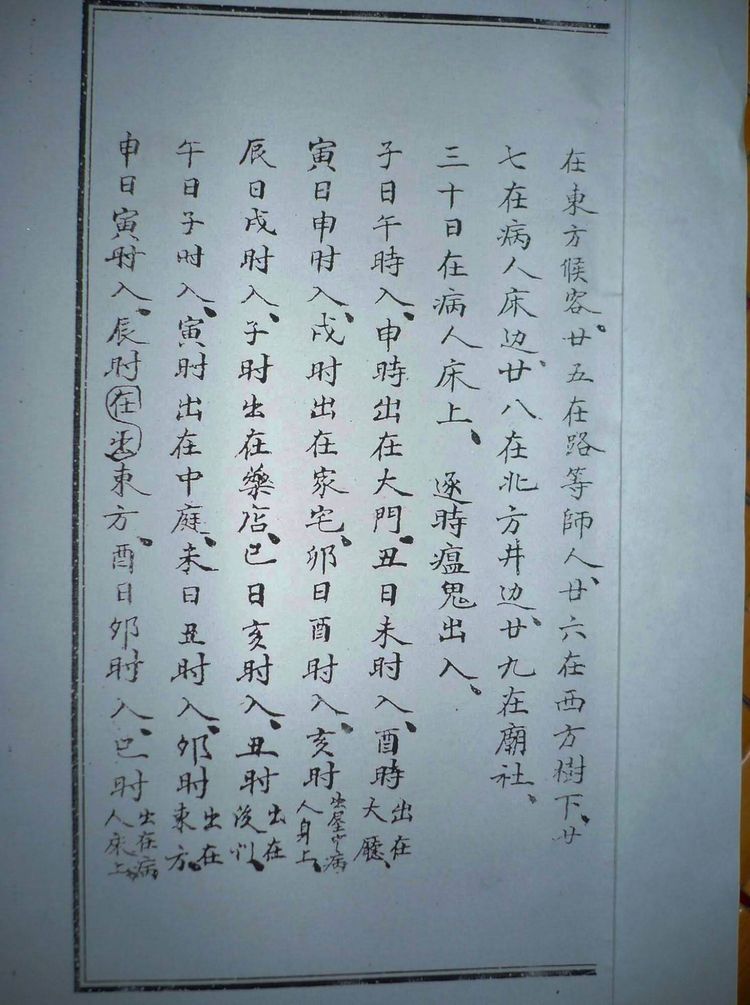 在東方候客、廿五在路等師人、廿六在西方樹下、廿
七在病人床边、廿八在北方井边、廿九在廟社、
三十日在病人床上、 逐時瘟鬼出入、
子日午時入、申時出在大門、丑日未时入、酉時出在大廳、
寅日申时入、戌时出在家宅、卯日酉时入、亥时出屋中病人身上、
辰日戌时入、子时出在藥店、巳日亥时入、丑时出在後
午日子时入、寅时出在中庭、未日丑时入、卯时出在東方、
申日寅时入、辰时在出東方、酉日卯时入、巳时出在病人床上、